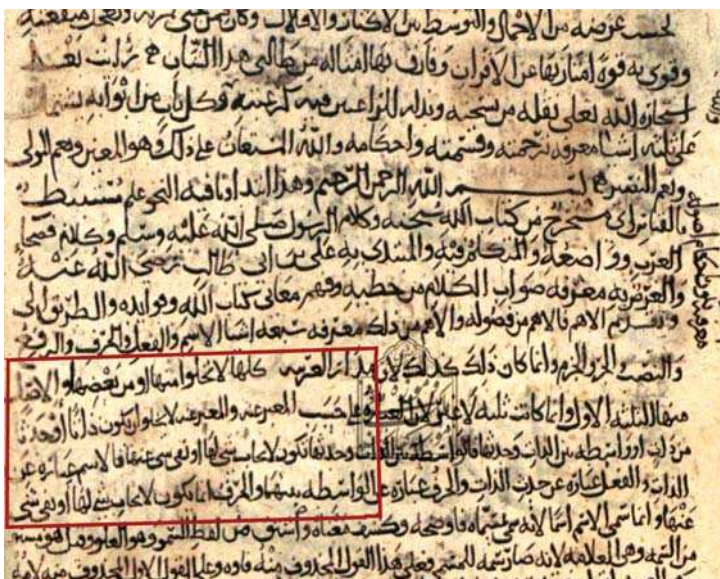 لحسب عرضه من الاجمال والتوسط بين الاكثار والاقلال وكان
وقوى به قوة امتاز بها عن الاقران وفارق بها امثاله من طالبي هذا الشان ثم رأيت بعد
استخارة الله تعلى نقله من نسخته وبذله للراغبين فيه كرغبته وكل باب من ابوابه يشتمل
على ثلثة اشيا معرفه ترجمته وقسمته واحكامه والله المستعان على ذلك وهو المعين ونعم المولى
ونعم النصير بسم الله الرحمن الرحيم وهذا ابتداونا فيه النحو علم مستنبط
بالقياس مستخرج من كتاب الله سبحنه وكلام الرسول صلى الله عليه وسلم وكلام فصحاء
العرب وواضعه والمتكلم فيه والمبتدى به على بن ابى طالب رضى الله عنه
والغرض به معرفه صواب الكلام من خطيه وفهم معانى كتاب الله وفوايده والطريق الى
وتقديم الاهم فالاهم من فصوله والاهم من ذلك معرفه سبعه اشيا الاسم والفعل والحرف والرفع
والنصب والجر والجزم وانما كان ذلك كذلك لان مدار العربيه كلها لا تخلوا منها او من بعضها والاصل
منها الثلثه الاول وانما كانت ثلثه لا غير لان العبارة على حسب المعبر عنه والمعبر عنه لا يخلوا ان يكون ذاتا او حدثا
من ذات او واسطه بين الذات وحدثها فالواسطه بين الذات وحدثها تكون لايجاب شى لها او نفى شى عنها فالاسم عباره عن
الذات والفعل عباره عن حدث الذات والحرف عباره عن الواسطه بينهما والحرف انما يكون لايجاب شى لها او نفى شى
عنها وانما سمى الاسم اسما لانه سمى مسماه فاوضحه وكشف معناه واشتق من لفظ السمو وهو العلو وقيل هو من
من السمه وهى العلامه لانه صار سمه للمسمى فعلى هذا القول المحذوف منه فاوه وعلى القول الاول المحذوف منه لامه